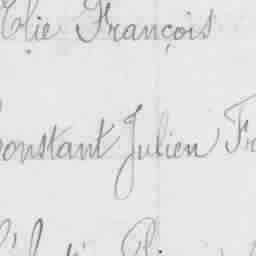 Elie François
Constant Julien Fr